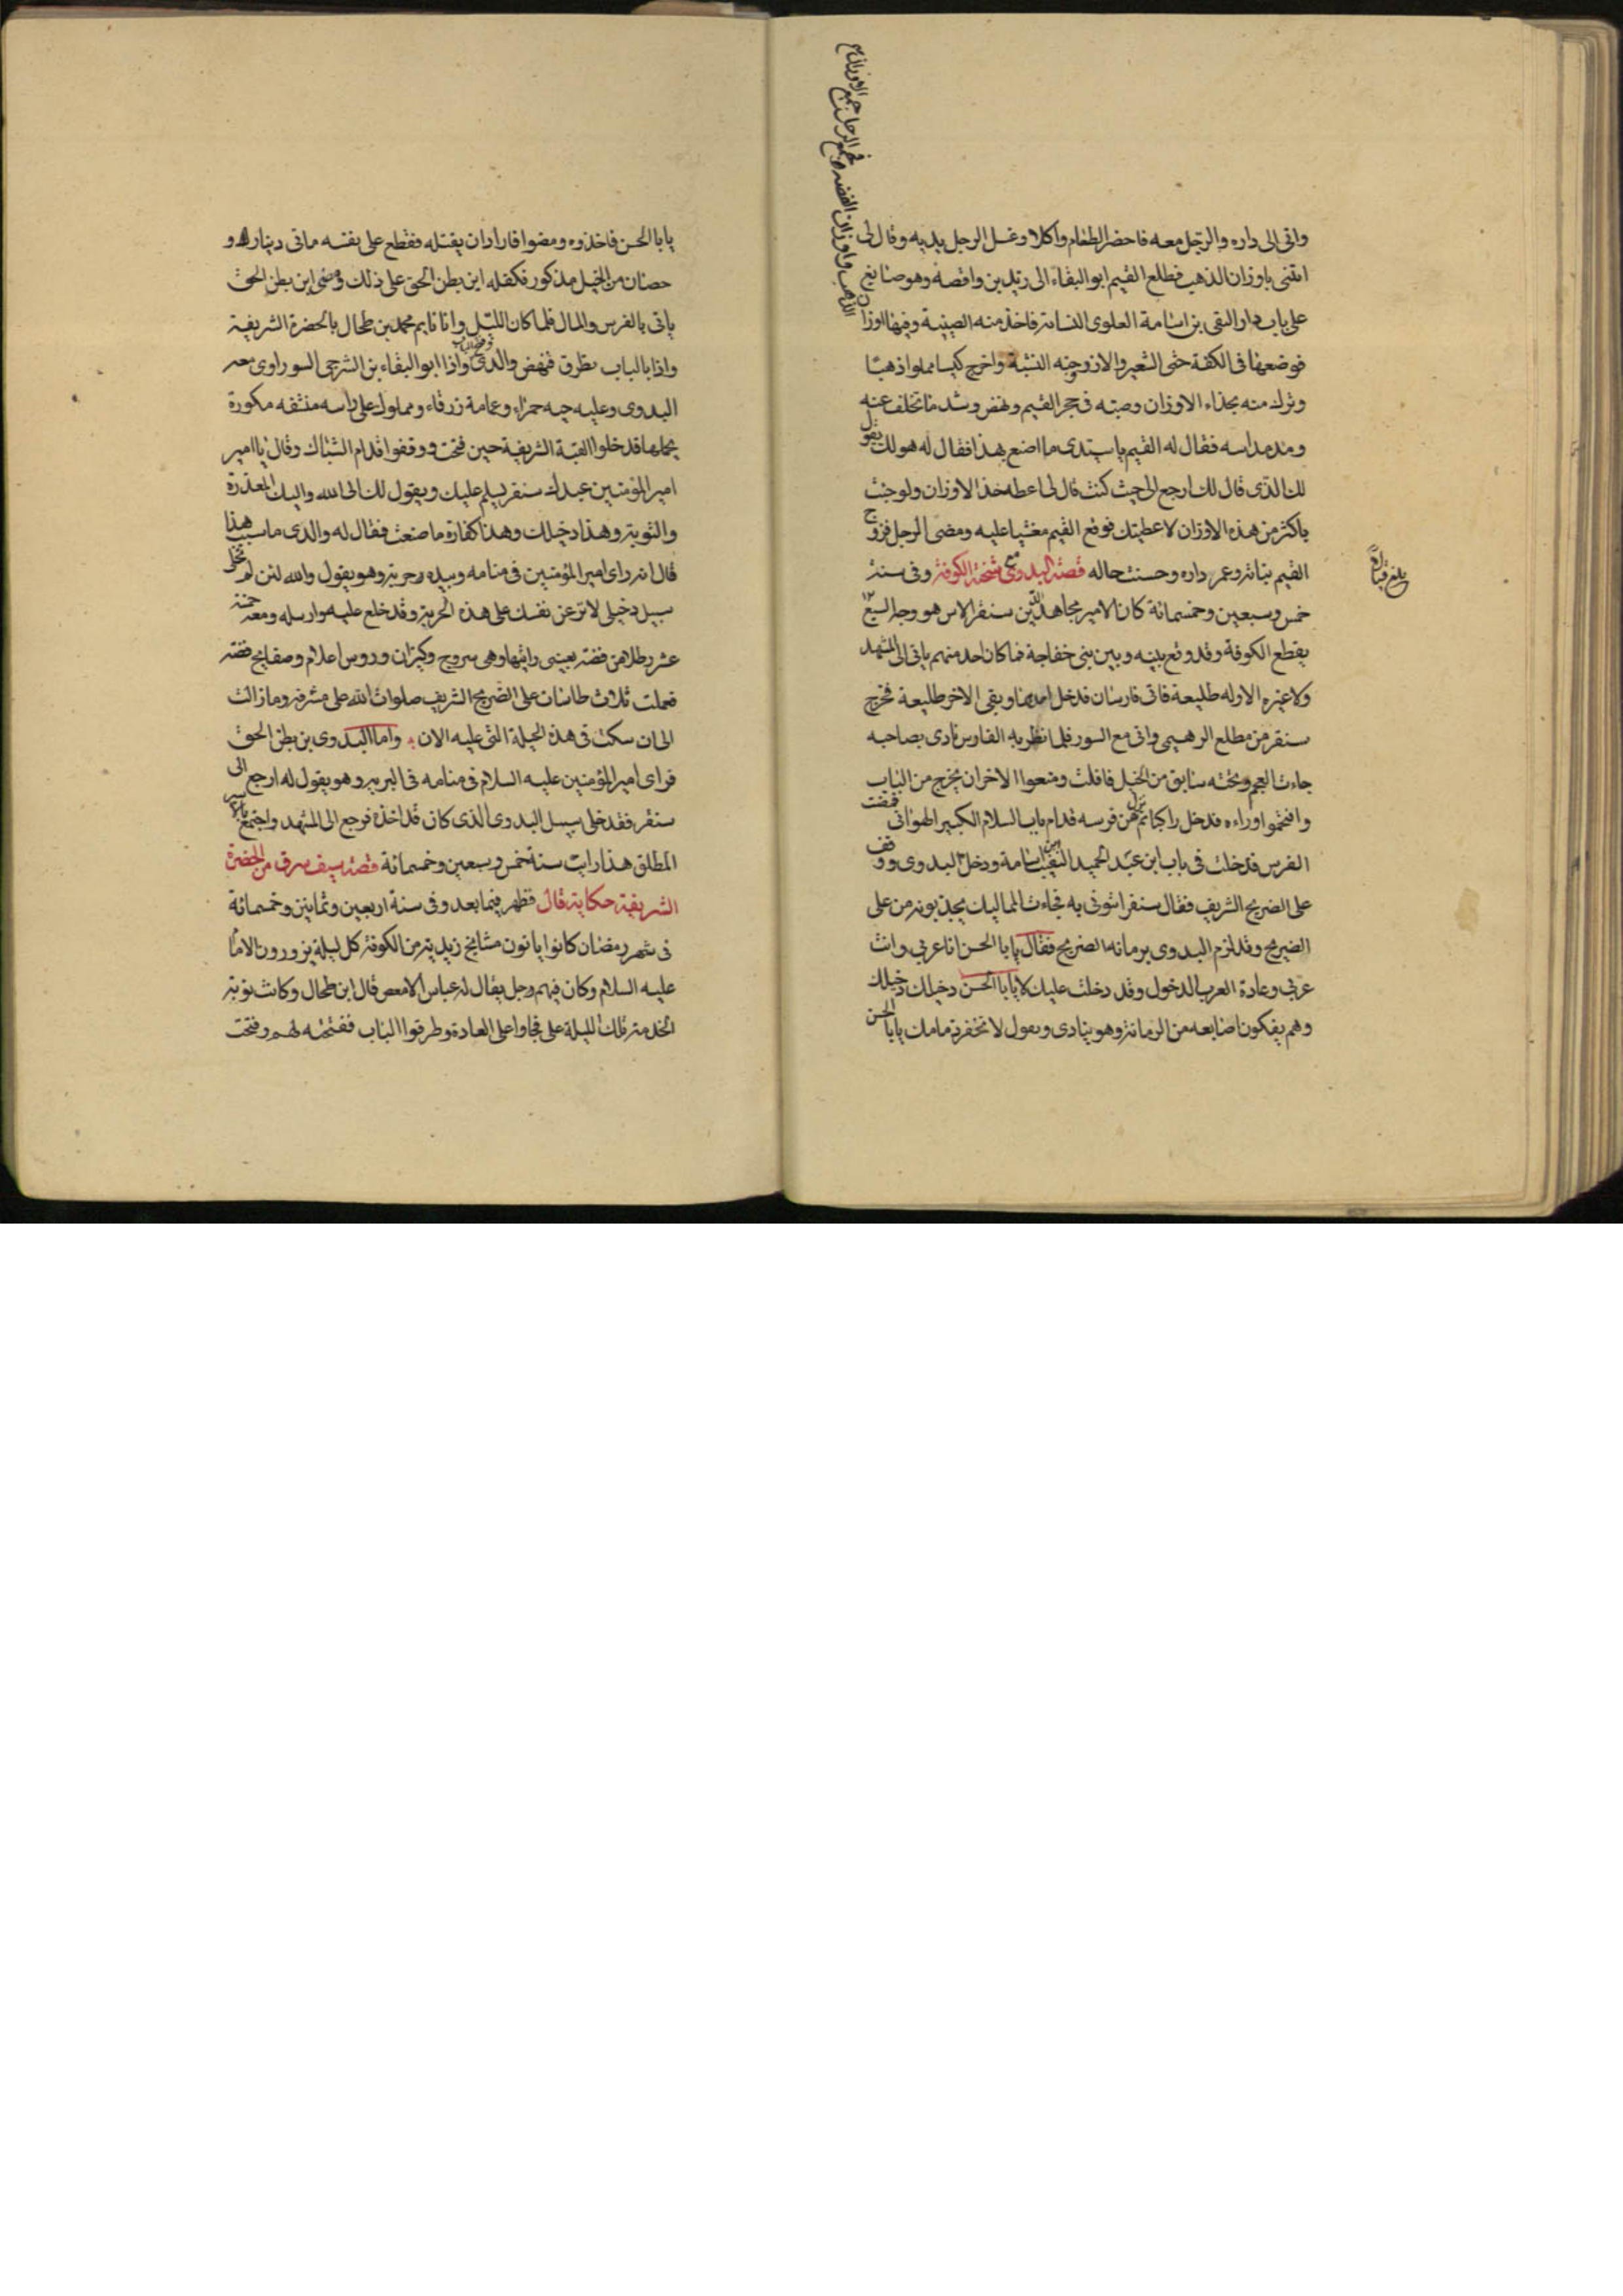 واتى الى داره والرجل معه فاحضر الطعام واكلا وغسل الرجل يديه وقال لى
ائتنى باوزان الذهب فطلع القيم ابو البقاء الى زيد بن واقصه وهو صايغ
على باب دار التقى بن اسامة العلوى النسابة فاخذ منه الصينية وفيها اوزان
الذهب واوزان الفضه فجمع الرجل جميع الاوزان
فوضعها فى الكفة حتى الشعير والارز وحبه الشبه واخرج كيسا مملوا ذهبا
وترك منه بحذاء الاوزان وصبه فى حجر القيم ونهض وشد ما تخلف عنه
ومد مداسه فقال له القيم يا سيدى ما اصنع بهذا فقال له هو لك يقول
لك الذى قال لك ارجع الى حيث كنت قال لى اعطه حذا الاوزان ولو جئت
باكثر من هذه الاوزان لاعطيتك فوقع القيم مغشيا عليه ومضى الرجل فزوج
القيم بناته وعمر داره وحسنت حاله قصة البدوى مع شحنة الكوفة وفى سنة
بلغ قبالا
خمس وسبعين وخمسمائة كان الامير مجاهد الدين سنقر الاس هو وجه السبع
يقطع الكوفة وقد وقع بينه وبين بنى خفاجة فما كان احد منهم ياتى الى المشهد
ولا غيره الا وله طليعة فاتى فارسان فدخل احدهما وبقى الاخر طليعة فخرج
سنقر من مطلع الرهيمى واتى مع السور فلما نظر به الفارس نادى بصاحبه
جاءت العجم وتحته سابق من الخيل فافلت ومنعوا الاخر ان يخرج من الباب
واقتحموا وراءه فدخل راكبا ثم نزل عن فرسه قدام باب السلام الكبير الهوانى فمضت
الفرس فدخلت فى باب ابن عبد الحميد النقيب بن اسامة ودخل البدوى ووقف
على الضريح الشريف فقال سنقر ائتونى به فجاءت المماليك يجذبونه من على
الضريح وقد لزم البدوى برمانة الضريح فقال يابا الحسن انا عربى وانت
عربى وعادة العرب الدخول وقد دخلت عليك يابا الحسن دخيلك دخيلك
وهم يفكون اصابعه من الرمانة وهو ينادى ويقول لا تخفر ذمامك يابا الحسن
يابا الحسن فاخذوه ومضوا فارادان يقتله فقطع على نفسه ماتى دينار و
حصان من الخيل مذكور فكفله ابن بطن الحق على ذلك ومضى ابن بطن الحق
ياتى بالفرس والمال فلما كان الليل وانا نايم محمد بن طحال بالحضرة الشريفة
واذا بالباب يطرق فنهض والدى وفتح الباب واذا ابو البقاء بن الشرجى السوراوى معه
البدوى وعليه جبه حمراء وعمامة زرقاء ومملوك على راسه منشفه مكورة
يحملها فدخلوا القبة الشريفة حين فتحت ووقفوا قدام الشباك وقال يا امير
امير المؤمنين عبدك سنقر يسلم عليك ويقول لك الى الله واليك المعذرة
والتوبة وهذا دخيلك وهذا كفارة ما صنعت فقال له والدى ما سبب هذا
قال انه راى امير المؤمنين فى منامه وبيده حربة وهو يقول والله لئن لم تخل
سبيل دخيلى لانزعن نفسك على هذه الحربة وقد خلع عليه وارسله ومعه خمسة
عشر رطلا من فضة بعينى رايتها وهى سروج وكيزان وروس اعلام وصفايح فضة
فعملت ثلاث طاسات على الضريح الشريف صلوات الله على مشرفه ومازالت
الى ان سكت فى هذه الحيلة التى عليه الان واما البدوى بن بطن الحق
فراى امير المؤمنين عليه السلام فى منامه فى البرية وهو يقول له ارجع الى
سنقر فقد خلى سبيل البدوى الذى كان قد اخذه فرجع الى المشهد واجتمع بالاسير
المطلق هذا رايت سنة خمس وسبعين وخمسمائة قصة سيف سرق من الحضرة
الشريفة حكاية قال فظهر فيما بعد وفى سنة اربعين وثمانين وخمسمائة
فى شهر رمضان كانوا ياتون مشايخ زيدية من الكوفة كل ليلة يزورون الامام
عليه السلام وكان فيهم رجل يقال له عباس الامعص قال ابن طحال وكانت نوبة
الخدمة تلك الليلة على فجاوا على العادة وطرقوا الباب ففتحته لهم وفتحت